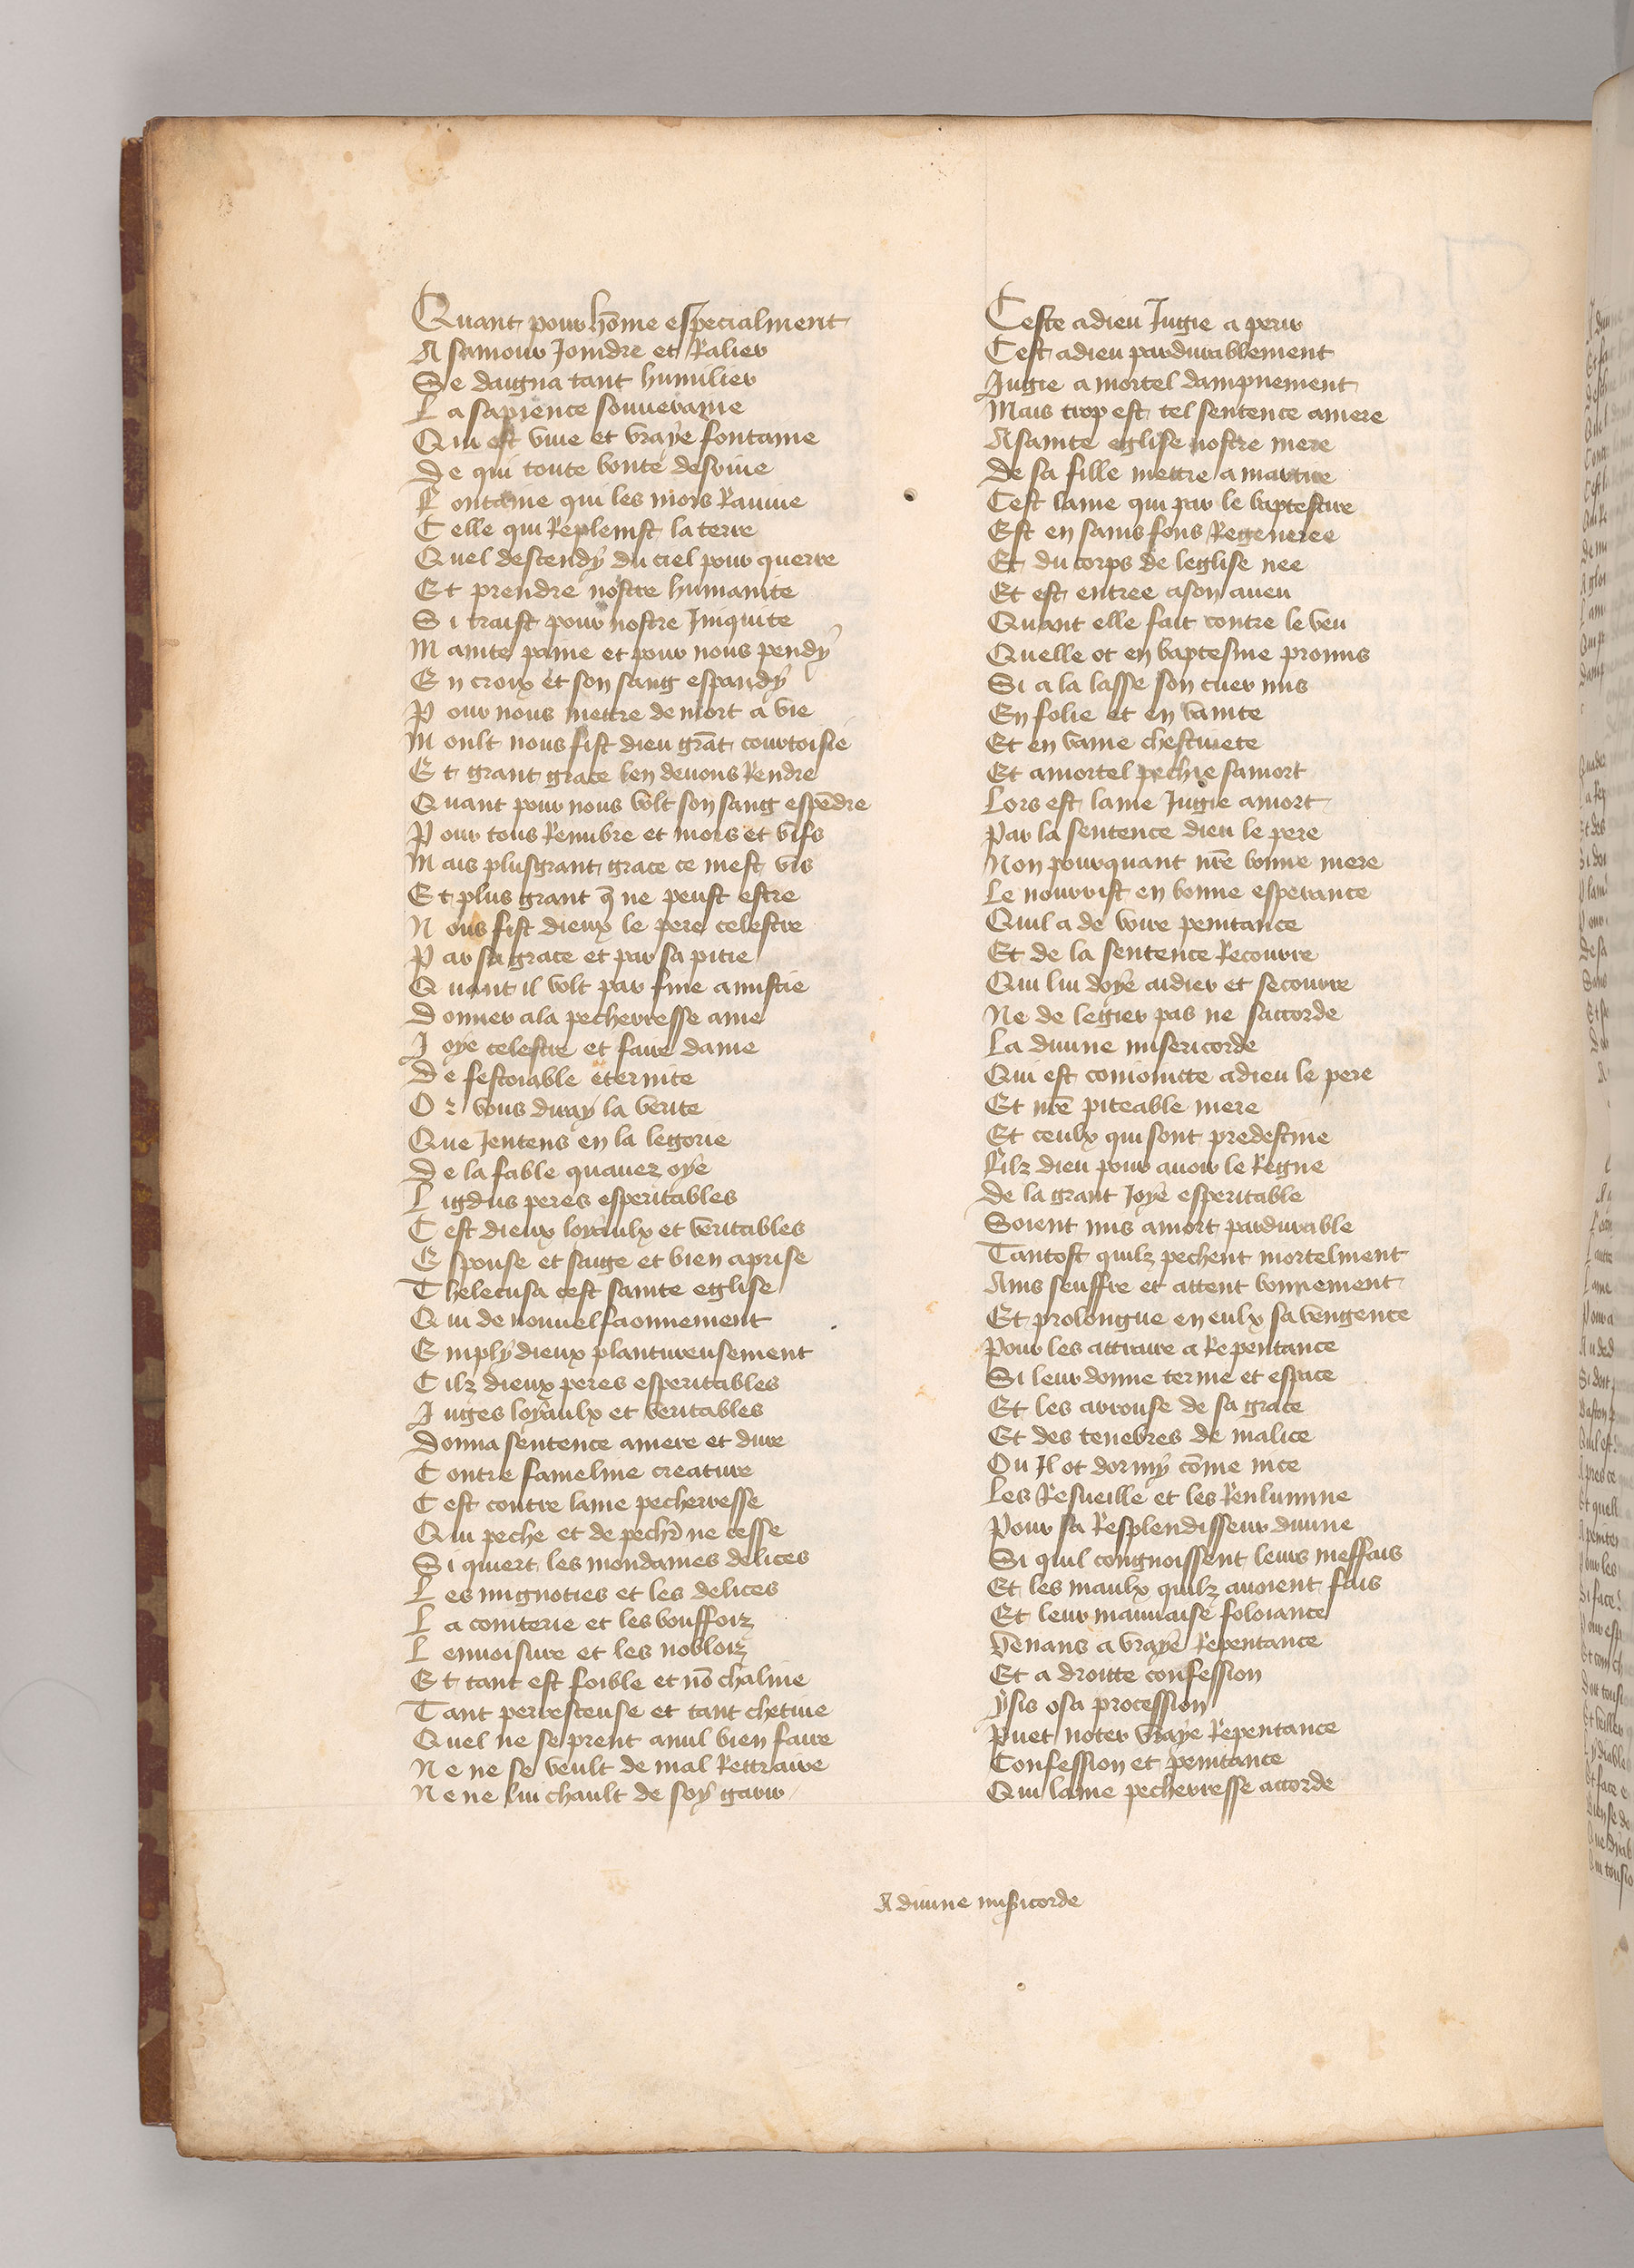 Quant pour hōme especialment
A samour Joindre et Ralier
Se daigna tant humilier
La sapience souueraine
Qui est viue et vraye fontaine
De qui toute bonte desriue
Fontaine qui les mors Rauiue
Celle qui Replenist la terre
Quel descendy du ciel pour querre
Et prendre nostre humanite
Si traist pour nostre Iniquite
Mainte paine et pour nous pendy
En croix et son sang espandy
Pour nous mettre de mort a vie
Moult nous fist dieu grāt courtoisie
Et grant grace len deuons Rendre
Quant pour nous volt son sang espēdre
Pour tous Reimbre et mors et vifs
Mais plusgrant grace ce mest vis
Et plus grant q̄ ne peust estre
Nous fist dieux le pere celestre
Par sa grace et par sa pitie
Quant il volt par fine amistie
Donner ala pecherresse ame
Joye celestre et faire dame
De festoiable eternite
Or vous diray la verite
Que Jentens en la legorie
De la fable quauez oye
Ligdus peres esperitables
Cest dieux loyaulx et veritables
Espouse et saige et bien aprise
Thelecusa cest sainte eglise
Qui de nouuel faonnement
Emply dieux plantureusement
Cilz dieux peres esperitables
Juges loyaulx et veritables
Donna sentence amere et dure
Contre fameline creature
Cest contre lame pecherresse
Qui peche et de pechr̄ ne cesse
Si quiert les mondaines delices
Les mignoties et les delices
La cointerie et les bouffoiz
Lenuoisure et les nobloiz
Et tant est foible et nō chaline
Tant perresceuse et tant chetiue
Quel ne se prent anul bien faire
Ne ne se veult de mal Rettraire
Ne ne lui chault de soy garir
Ceste adieu Jugie a perir
Cest adieu pardurablement
Jugie a mortel dampnement
Mais trop est tel sentence amere
Asainte eglise nostre mere
De sa fille mettre a martire
Cest lame qui par le baptestire
Est en sains fons Regeneree
Et du corps de leglise nee
Et est entree ason aueu
Quant elle fait contre le veu
Quelle ot en baptesme promis
Si a la lasse son cuer mis
En folie et en vanite
Et en vaine chestiuete
Et amortel pechie samort
Lors est lame Jugie amort
Par la sentence dieu le pere
Non pourquant nr̄e bonne mere
Le nourrist en bonne esperance
Quil a de voire penitance
Et de la sentence Recourre
Qui lui doye aidier et secourre
Ne de legier pas ne saccorde
La diuine misericorde
Qui est comoincte adieu le pere
Et nr̄e piteable mere
Et ceulx qui sont predestine
Filz dieu pour auoir le Regne
De la grant Joye esperitable
Soient mis amort pardurable
Tantost quilz pechent mortelment
Ains seuffre et attent bonnement
Et prolongue en eulx sa vengence
Pour les attraire a Repentance
Si leur donne terme et espace
Et les arrouse de sa grace
Et des tenebres de malice
Ou Il ot dormy cōme nice
Les Resueille et les Renlumine
Pour sa Resplendisseur diuine
Si quil congnoissent leurs meffais
Et les maulx quilz auoient fais
Et leur mauuaise foloiance
Venans a vraye Repentance
Et a droitte confession
ysis osa procession
Puet noter vraye Repentance
Confession et penitance
Qui lame pecherresse accorde
A diuine mis̄icorde